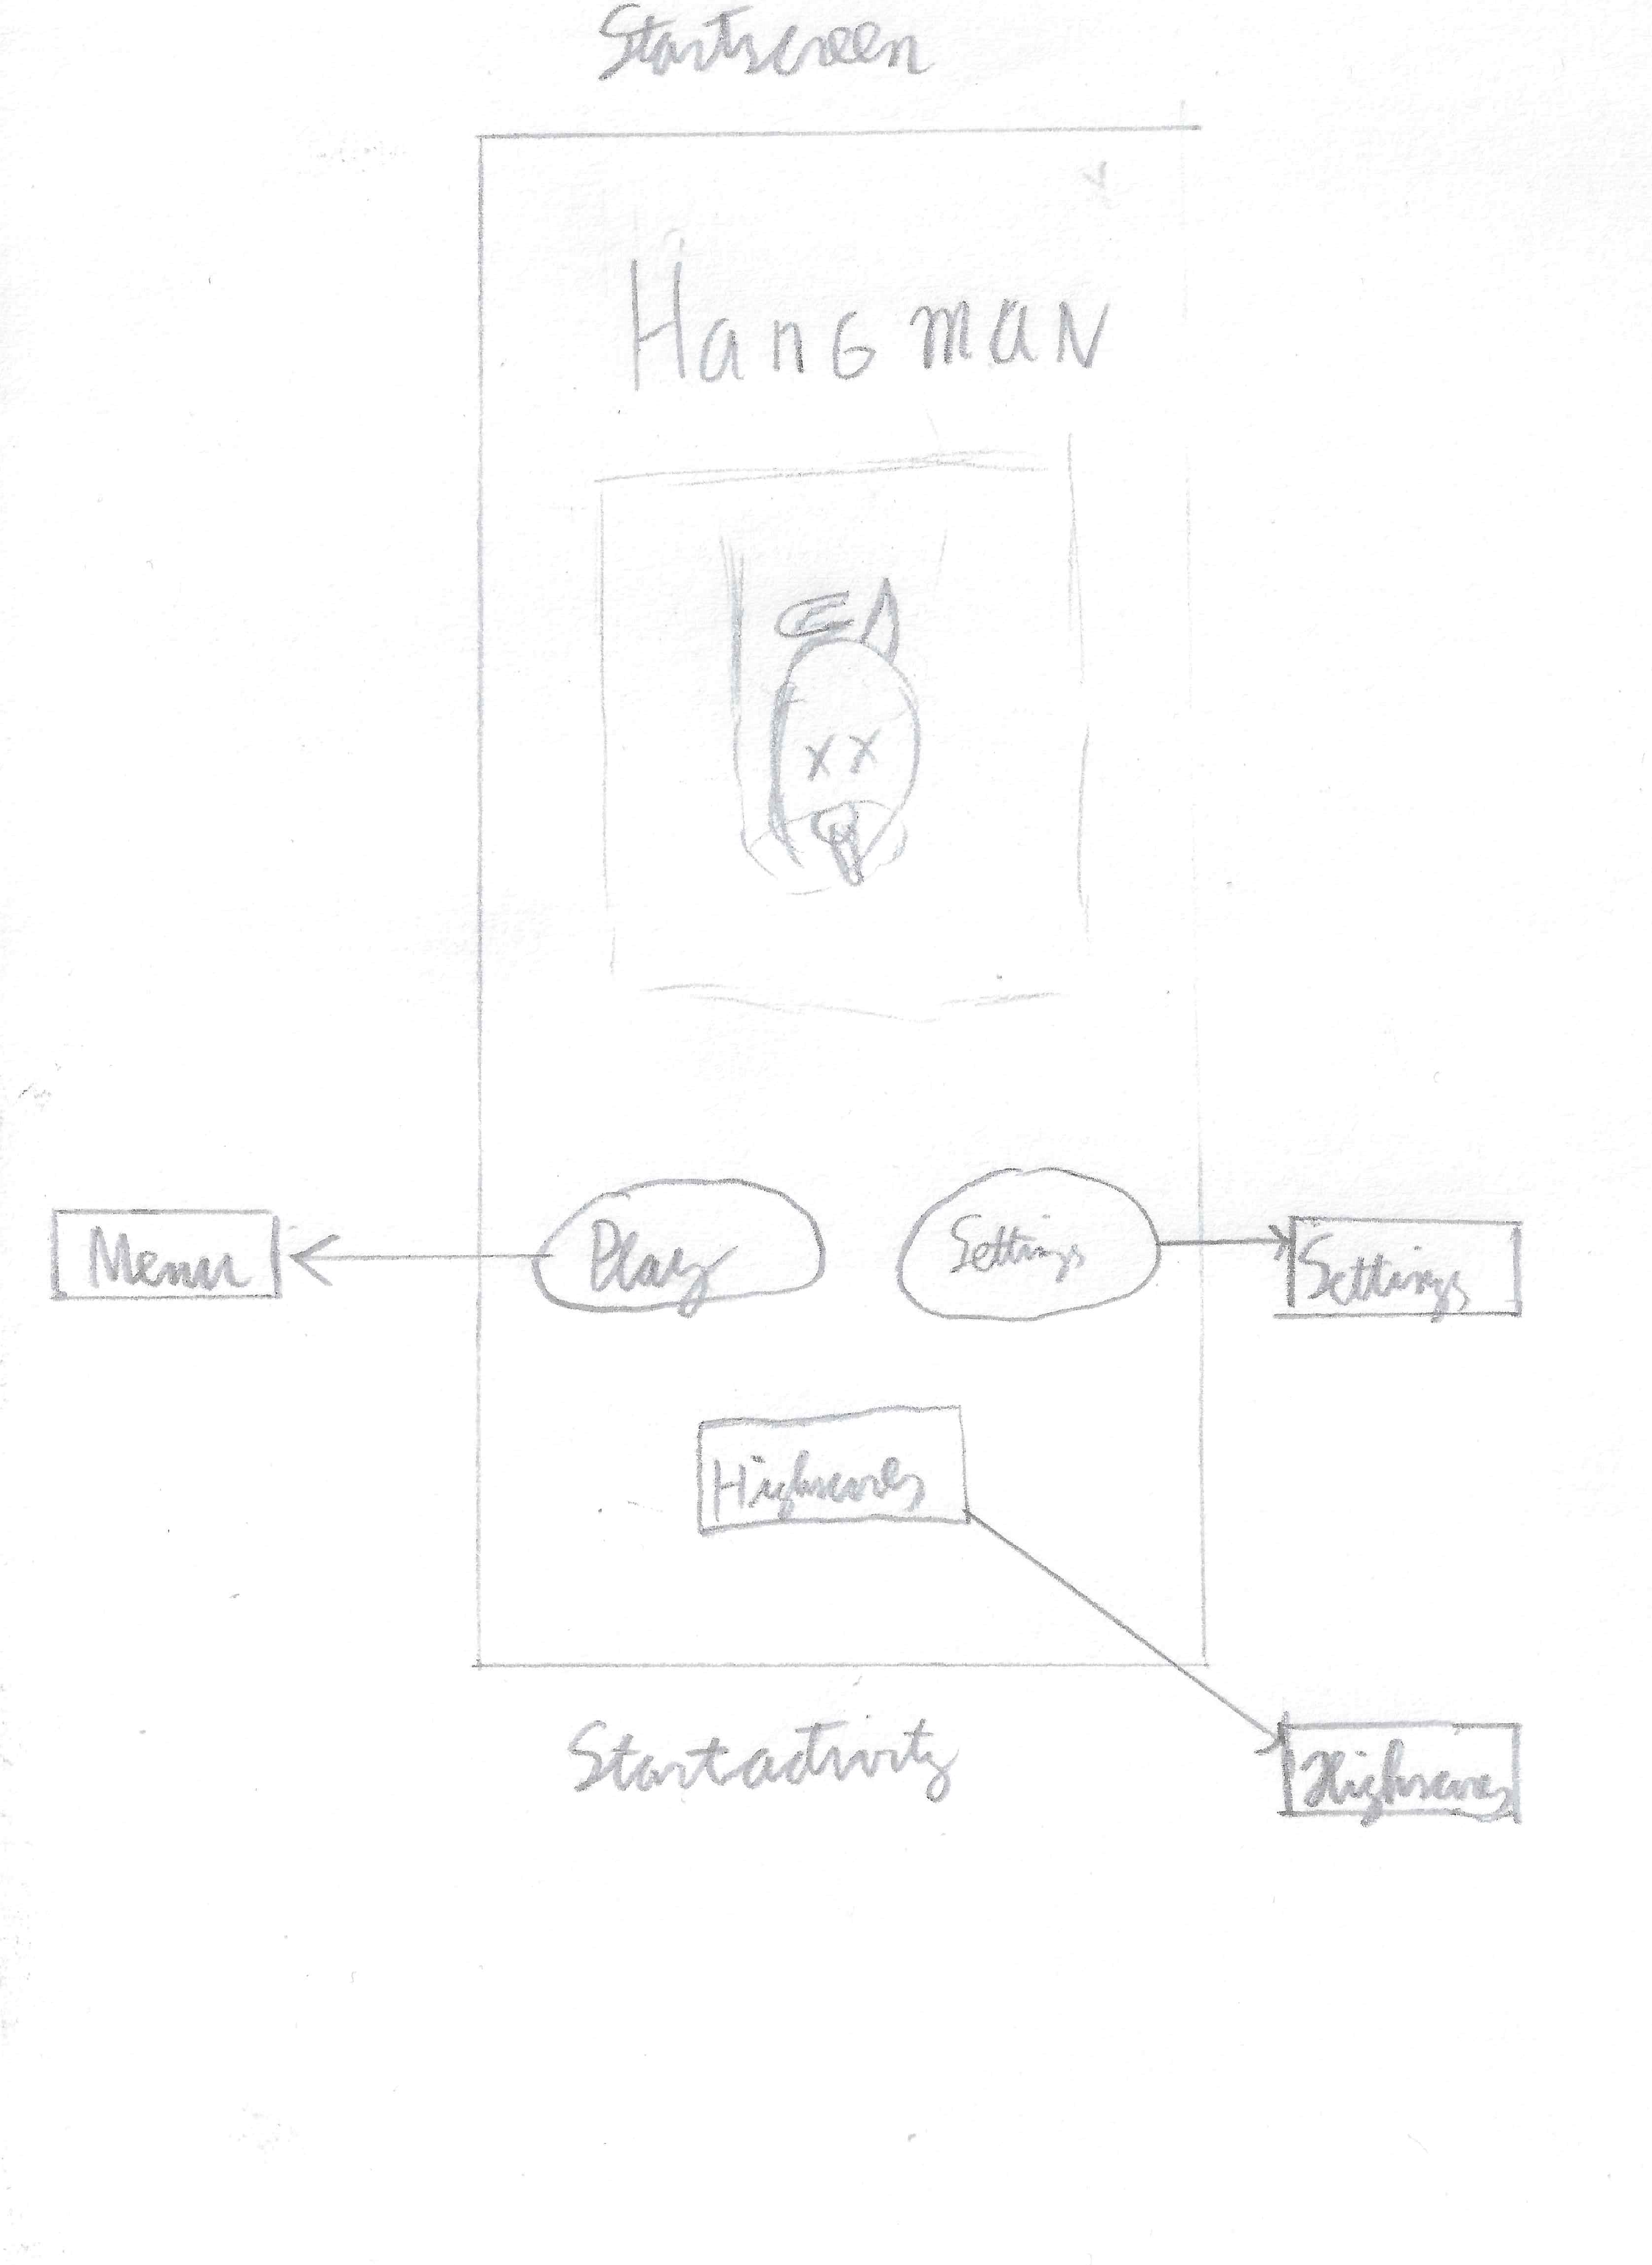 Startscreen
HanG maN
x x
Menu
Play
Settings
Settings
Highscores
Startactivity
Highscores